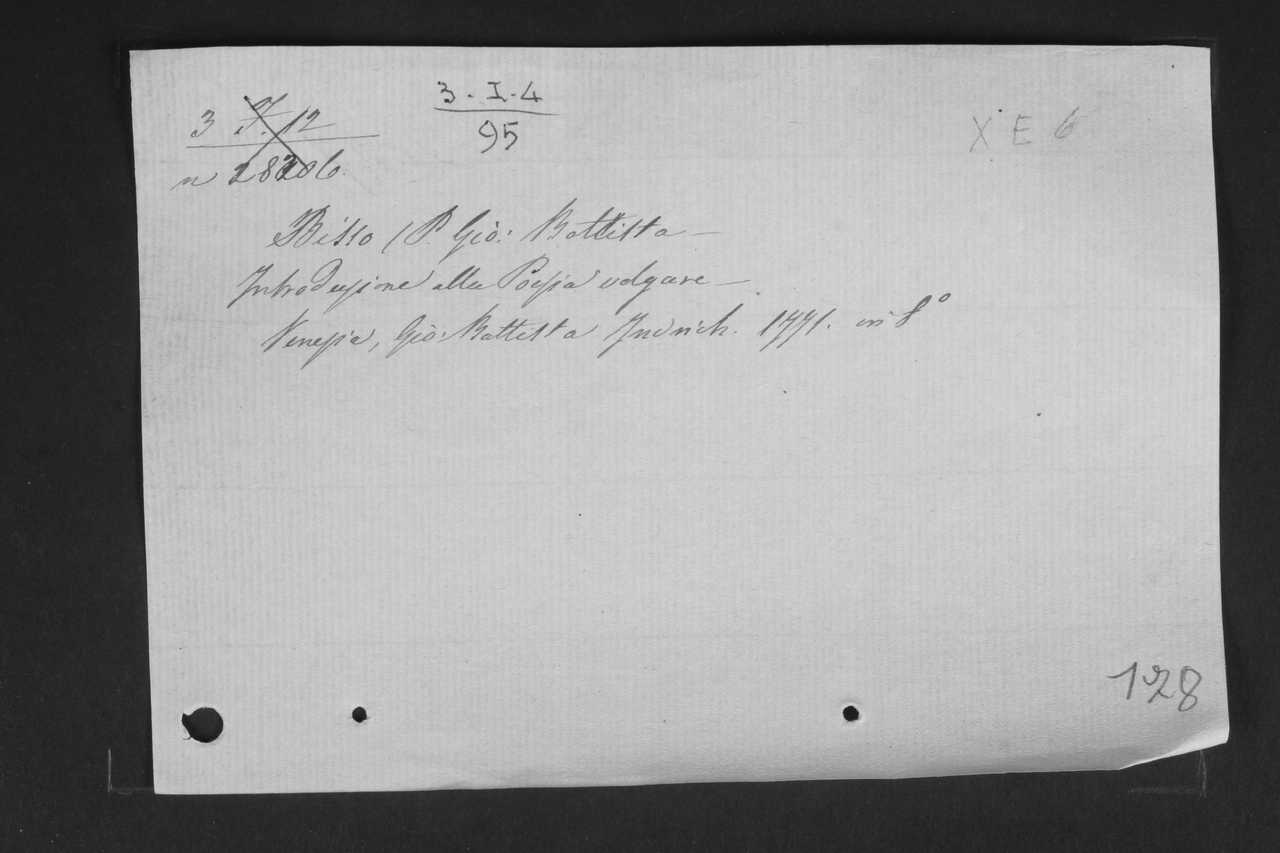 3 7.12
n 28286.
3. I. 4
95
X E 6
Bisso (P. Gio: Battista —
Introduzione alla Poesia volgare —
Venezia, Gio: Battista Indrich. 1771. in 8°
128